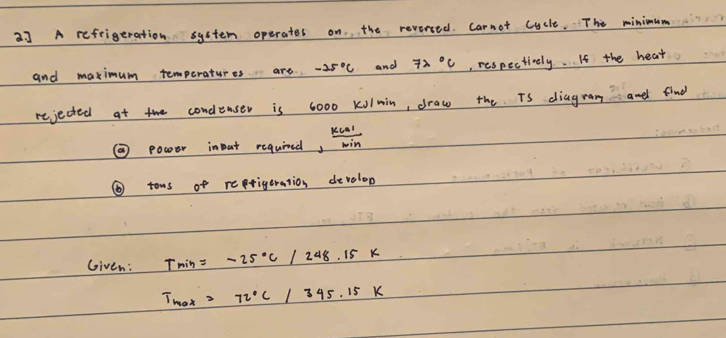 2.] A refrigeration system operates on the reversed Carnot Cycle. The minimum
and maximum temperatures are -25°C and 72 °C, respectively. If the heat
rejected at the condenser is 6000 KJ/min, draw the TS diagram and find
ⓐ power input required, Kcal/min
ⓑ tons of refrigeration develop
Given: Tmin = -25°C / 248.15 K
Tmax = 72°C / 345.15 K